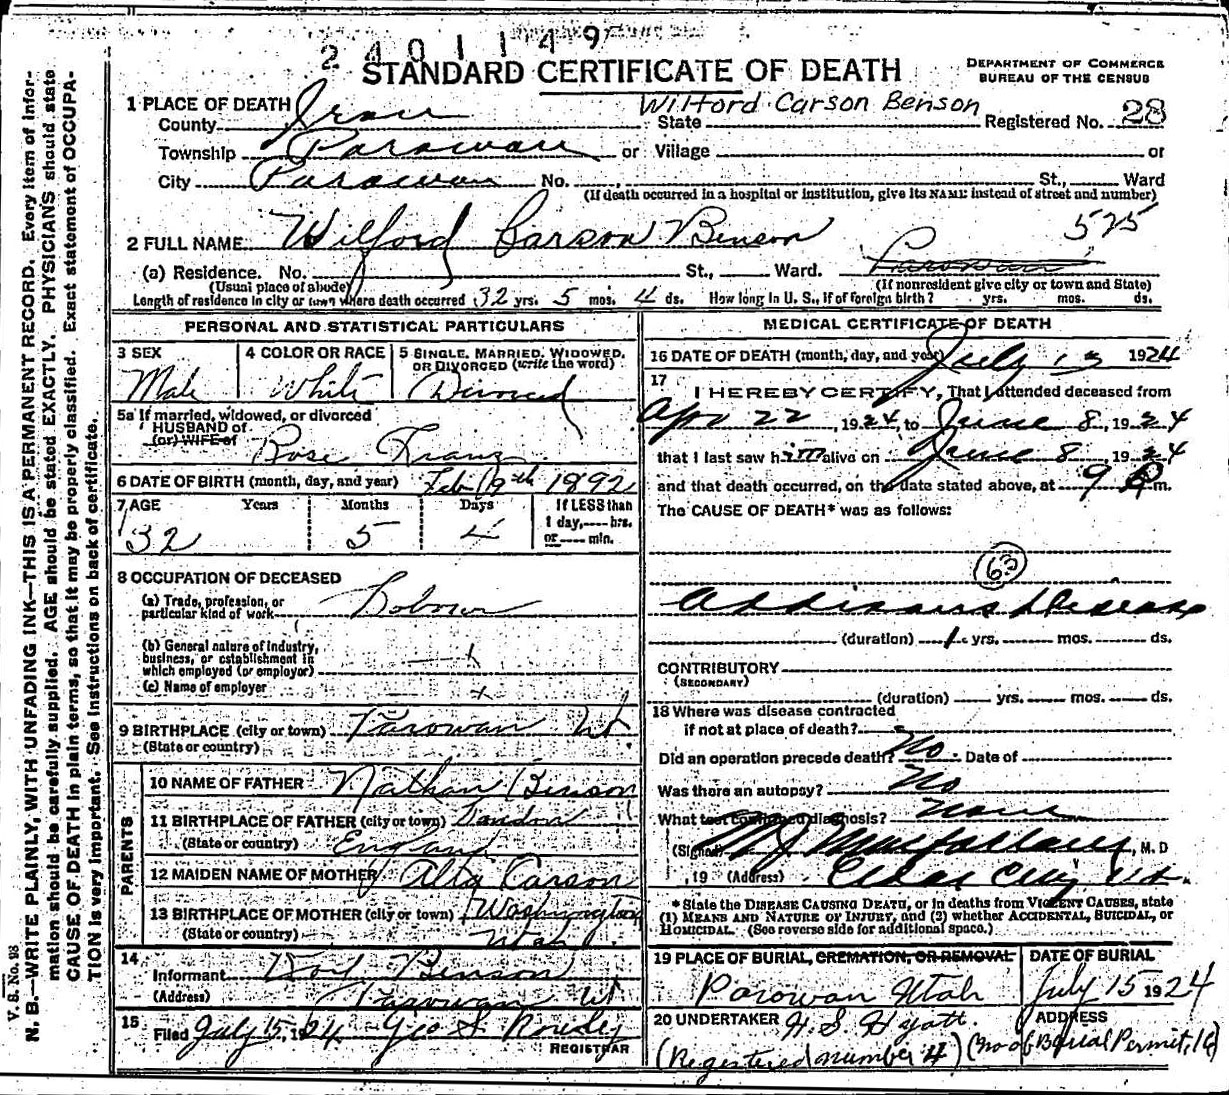 2401149
STANDARD CERTIFICATE OF DEATH
DEPARTMENT OF COMMERCE
BUREAU OF THE CENSUS
1 PLACE OF DEATH
Wilford Carson Benson
County Iron State Registered No. 28
Township Parowan or Village or
City Parowan No. St., Ward
(If death occurred in a hospital or institution, give its NAME instead of street and number)
575
2 FULL NAME Wilford Carson Benson
(a) Residence. No. St., Ward. Parowan
(Usual place of abode) (If nonresident give city or town and State)
Length of residence in city or town where death occurred 32 yrs. 5 mos. 4 ds. How long in U. S., if of foreign birth? yrs. mos. ds.
PERSONAL AND STATISTICAL PARTICULARS
3 SEX 4 COLOR OR RACE 5 SINGLE, MARRIED, WIDOWED, OR DIVORCED (write the word)
Male White Divorced
5a If married, widowed, or divorced
HUSBAND of
(or) WIFE of Rose
6 DATE OF BIRTH (month, day, and year) Feb 9th 1892
7 AGE Years Months Days If LESS than
1 day, hrs.
or min.
32 5 4
8 OCCUPATION OF DECEASED
(a) Trade, profession, or
particular kind of work
(b) General nature of industry,
business, or establishment in
which employed (or employer)
(c) Name of employer
9 BIRTHPLACE (city or town) Parowan Ut
(State or country)
PARENTS
10 NAME OF FATHER Nathan Benson
11 BIRTHPLACE OF FATHER (city or town) London
(State or country) England
12 MAIDEN NAME OF MOTHER Carson
13 BIRTHPLACE OF MOTHER (city or town) Washington
(State or country) Utah
14
Informant Benson
(Address) Parowan Ut
15
Filed July 15, 1924 Geo S. Rowley
REGISTRAR
MEDICAL CERTIFICATE OF DEATH
16 DATE OF DEATH (month, day, and year) July 13 1924
17
I HEREBY CERTIFY, That I attended deceased from
Apr 22, 1924, to June 8, 1924
that I last saw him alive on June 8, 1924
and that death occurred, on the date stated above, at 9 P m.
The CAUSE OF DEATH* was as follows:
63
Addisons Disease
(duration) 1 yrs. mos. ds.
CONTRIBUTORY
(SECONDARY)
(duration) yrs. mos. ds.
18 Where was disease contracted
if not at place of death?
Did an operation precede death? No Date of
Was there an autopsy? No
What test confirmed diagnosis? None
(Signed) M J Macfarlane, M. D
, 19 (Address) Cedar City Ut.
* State the DISEASE CAUSING DEATH, or in deaths from VIOLENT CAUSES, state
(1) MEANS AND NATURE OF INJURY, and (2) whether ACCIDENTAL, SUICIDAL, or
HOMICIDAL. (See reverse side for additional space.)
19 PLACE OF BURIAL, CREMATION, OR REMOVAL DATE OF BURIAL
Parowan Utah July 15 1924
20 UNDERTAKER H. S. Hyatt ADDRESS
(Registered number 4) (No of Burial Permit, 16)
V. S. No. 98
N. B.—WRITE PLAINLY, WITH UNFADING INK—THIS IS A PERMANENT RECORD. Every item of infor-
mation should be carefully supplied. AGE should be stated EXACTLY. PHYSICIANS should state
CAUSE OF DEATH in plain terms, so that it may be properly classified. Exact statement of OCCUPA-
TION is very important. See instructions on back of certificate.